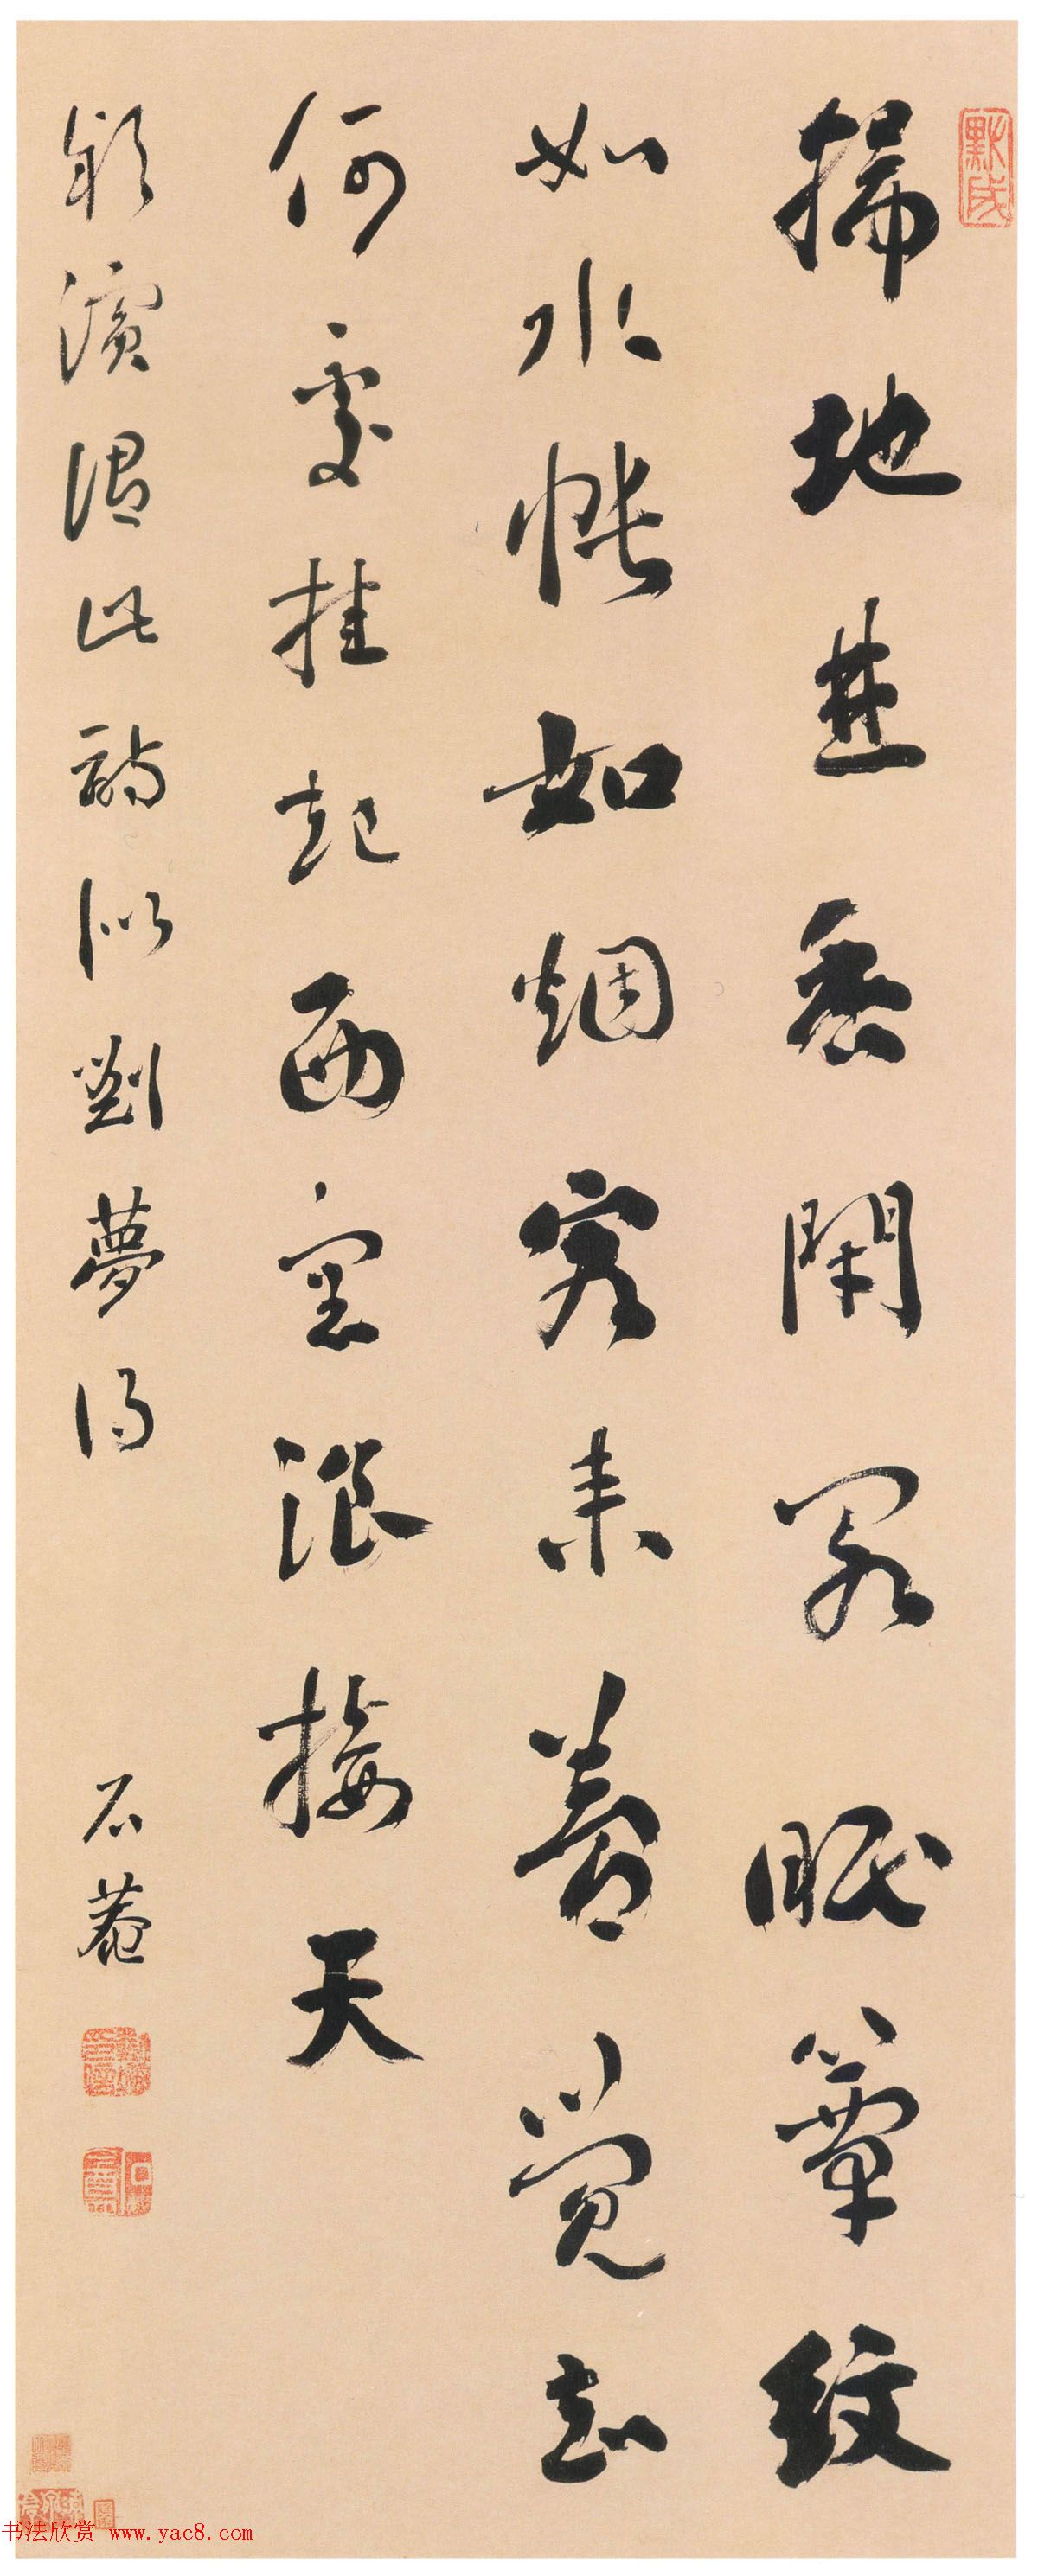 默成
掃地焚香閉閣眠簟紋
如水帳如烟客來夢覺知
何處挂起西窗浪接天
潁濱謂此詩似劉夢得 石菴
书法欣赏 www.yac8.com